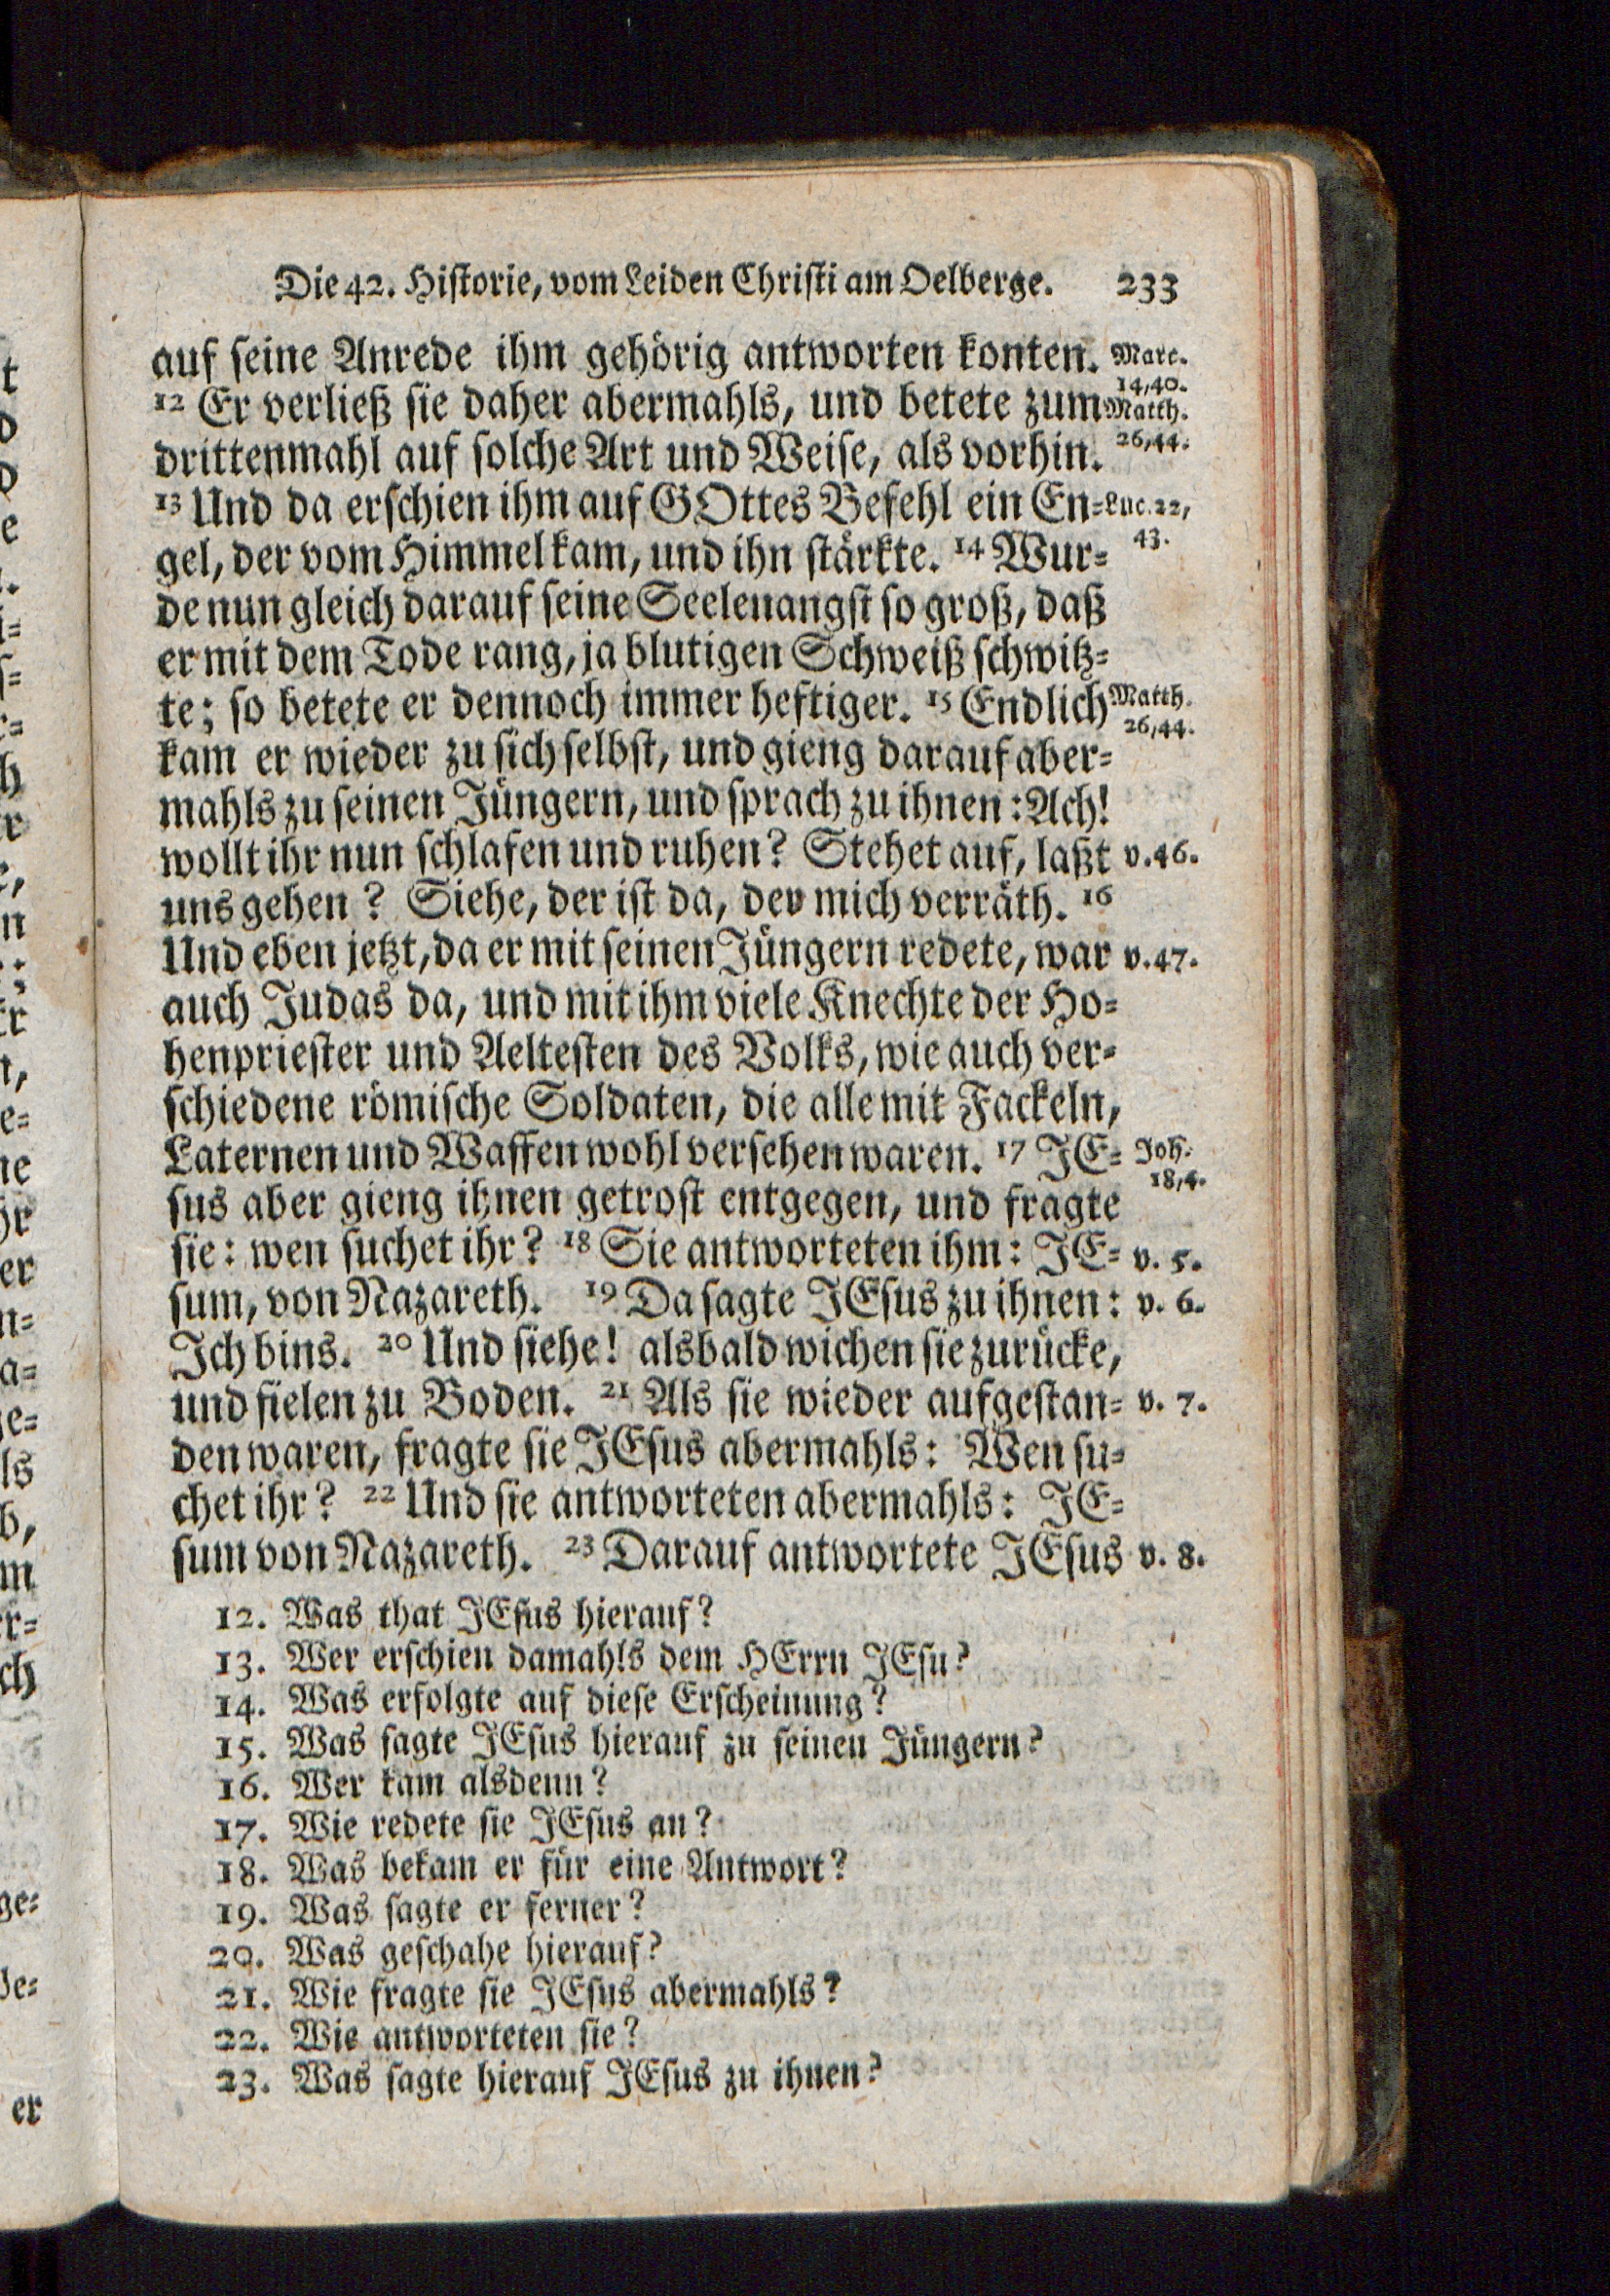 Die 42. Historie, vom Leiden Christi am Oelberge. 233
auf seine Anrede ihm gehörig antworten konten. Marc.
14,40.
¹² Er verließ sie daher abermahls, und betete zum Matth.
drittenmahl auf solche Art und Weise, als vorhin. 26,44.
¹³ Und da erschien ihm auf GOttes Befehl ein En= Luc. 22,
gel, der vom Himmel kam, und ihn stärkte. ¹⁴ Wur= 43.
de nun gleich darauf seine Seelenangst so groß, daß
er mit dem Tode rang, ja blutigen Schweiß schwitz=
te; so betete er dennoch immer heftiger. ¹⁵ Endlich Matth.
26,44.
kam er wieder zu sich selbst, und gieng darauf aber=
mahls zu seinen Jüngern, und sprach zu ihnen: Ach!
wollt ihr nun schlafen und ruhen? Stehet auf, laßt v. 46.
uns gehen? Siehe, der ist da, der mich verräth. ¹⁶
Und eben jetzt, da er mit seinen Jüngern redete, war v. 47.
auch Judas da, und mit ihm viele Knechte der Ho=
henpriester und Aeltesten des Volks, wie auch ver=
schiedene römische Soldaten, die alle mit Fackeln,
Laternen und Waffen wohl versehen waren. ¹⁷ JE= Joh.
18,4.
sus aber gieng ihnen getrost entgegen, und fragte
sie: wen suchet ihr? ¹⁸ Sie antworteten ihm: JE= v. 5.
sum, von Nazareth. ¹⁹ Da sagte JEsus zu ihnen: v. 6.
Ich bins. ²⁰ Und siehe! alsbald wichen sie zurücke,
und fielen zu Boden. ²¹ Als sie wieder aufgestan= v. 7.
den waren, fragte sie JEsus abermahls: Wen su=
chet ihr? ²² Und sie antworteten abermahls: JE=
sum von Nazareth. ²³ Darauf antwortete JEsus v. 8.
12. Was that JEsus hierauf?
13. Wer erschien damahls dem HErrn JEsu?
14. Was erfolgte auf diese Erscheinung?
15. Was sagte JEsus hierauf zu seinen Jüngern?
16. Wer kam alsdenn?
17. Wie redete sie JEsus an?
18. Was bekam er für eine Antwort?
19. Was sagte er ferner?
20. Was geschahe hierauf?
21. Wie fragte sie JEsus abermahls?
22. Wie antworteten sie?
23. Was sagte hierauf JEsus zu ihnen?